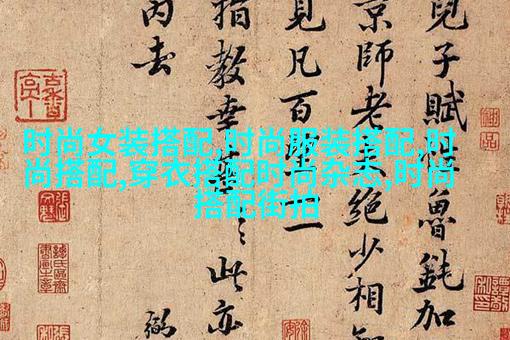 兒子賦性魯鈍加
京師老夫絕少相
見凡百望一一
指教幸甚〻此亦
时尚女装搭配,时尚服装搭配,时
尚搭配,穿衣搭配时尚杂志,时尚
搭配街拍